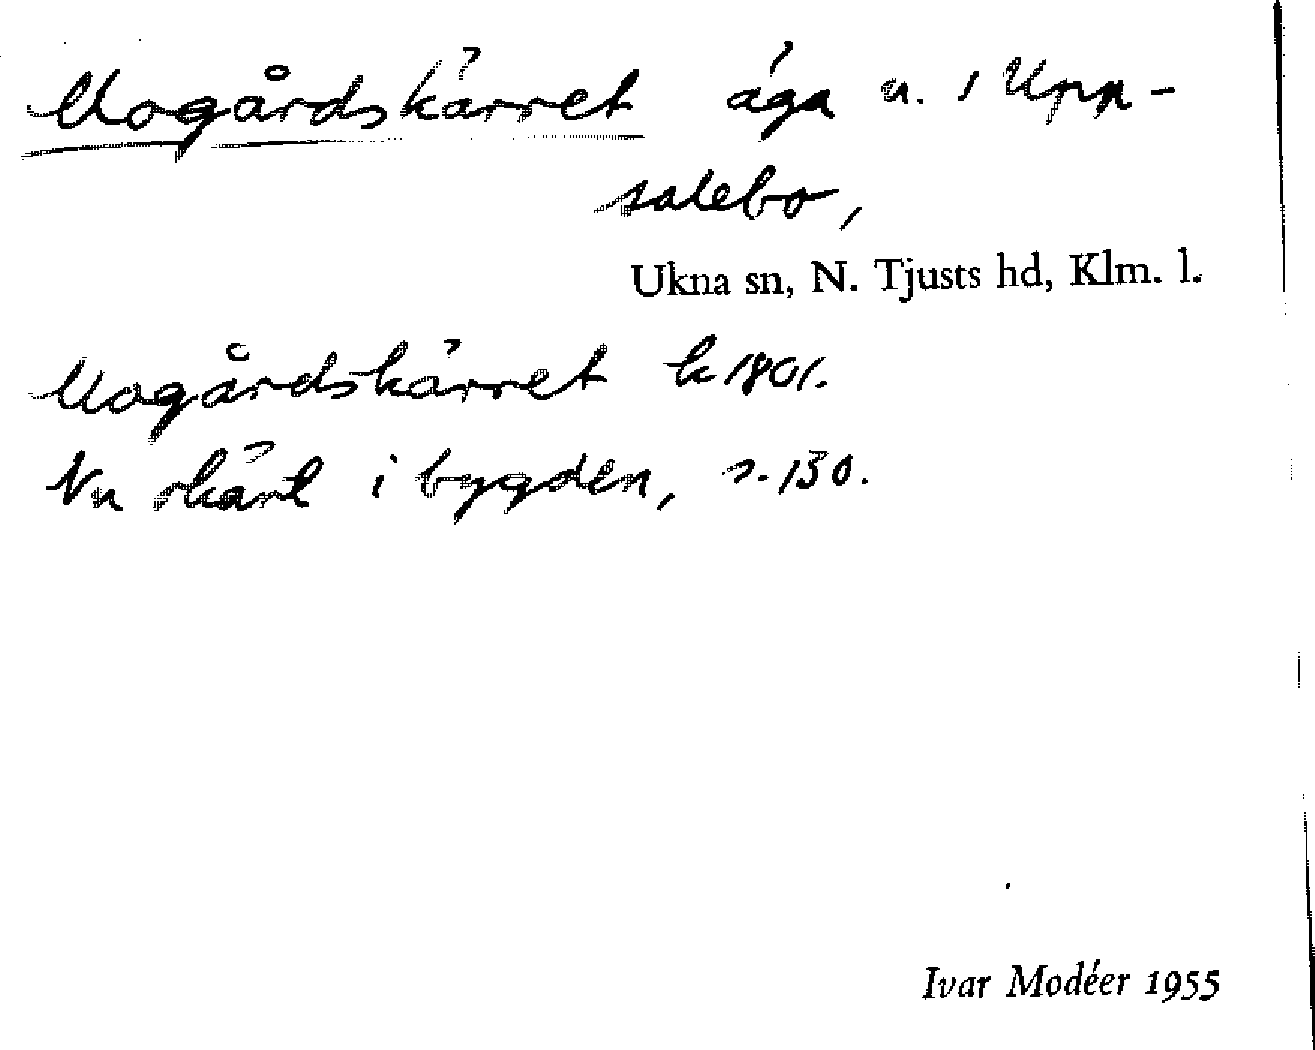 Mogårdskärret äga u. 1 Upp-
salebo,
Ukna sn, N. Tjusts hd, Klm. l.
Mogårdskärret k 1801.
Nu okänt i bygden, s. 130.
Ivar Modéer 1955